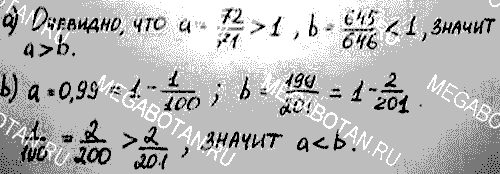 а) Очевидно, что a = 72/71 > 1, b = 645/646 < 1, значит
a > b.
b) a = 0,99 = 1 - 1/100; b = 199/201 = 1 - 2/201.
1/100 = 2/200 > 2/201, значит a < b.
MEGABOTAN.RU
MEGABOTAN.RU
MEGABOTAN.RU
MEGABOTAN.RU